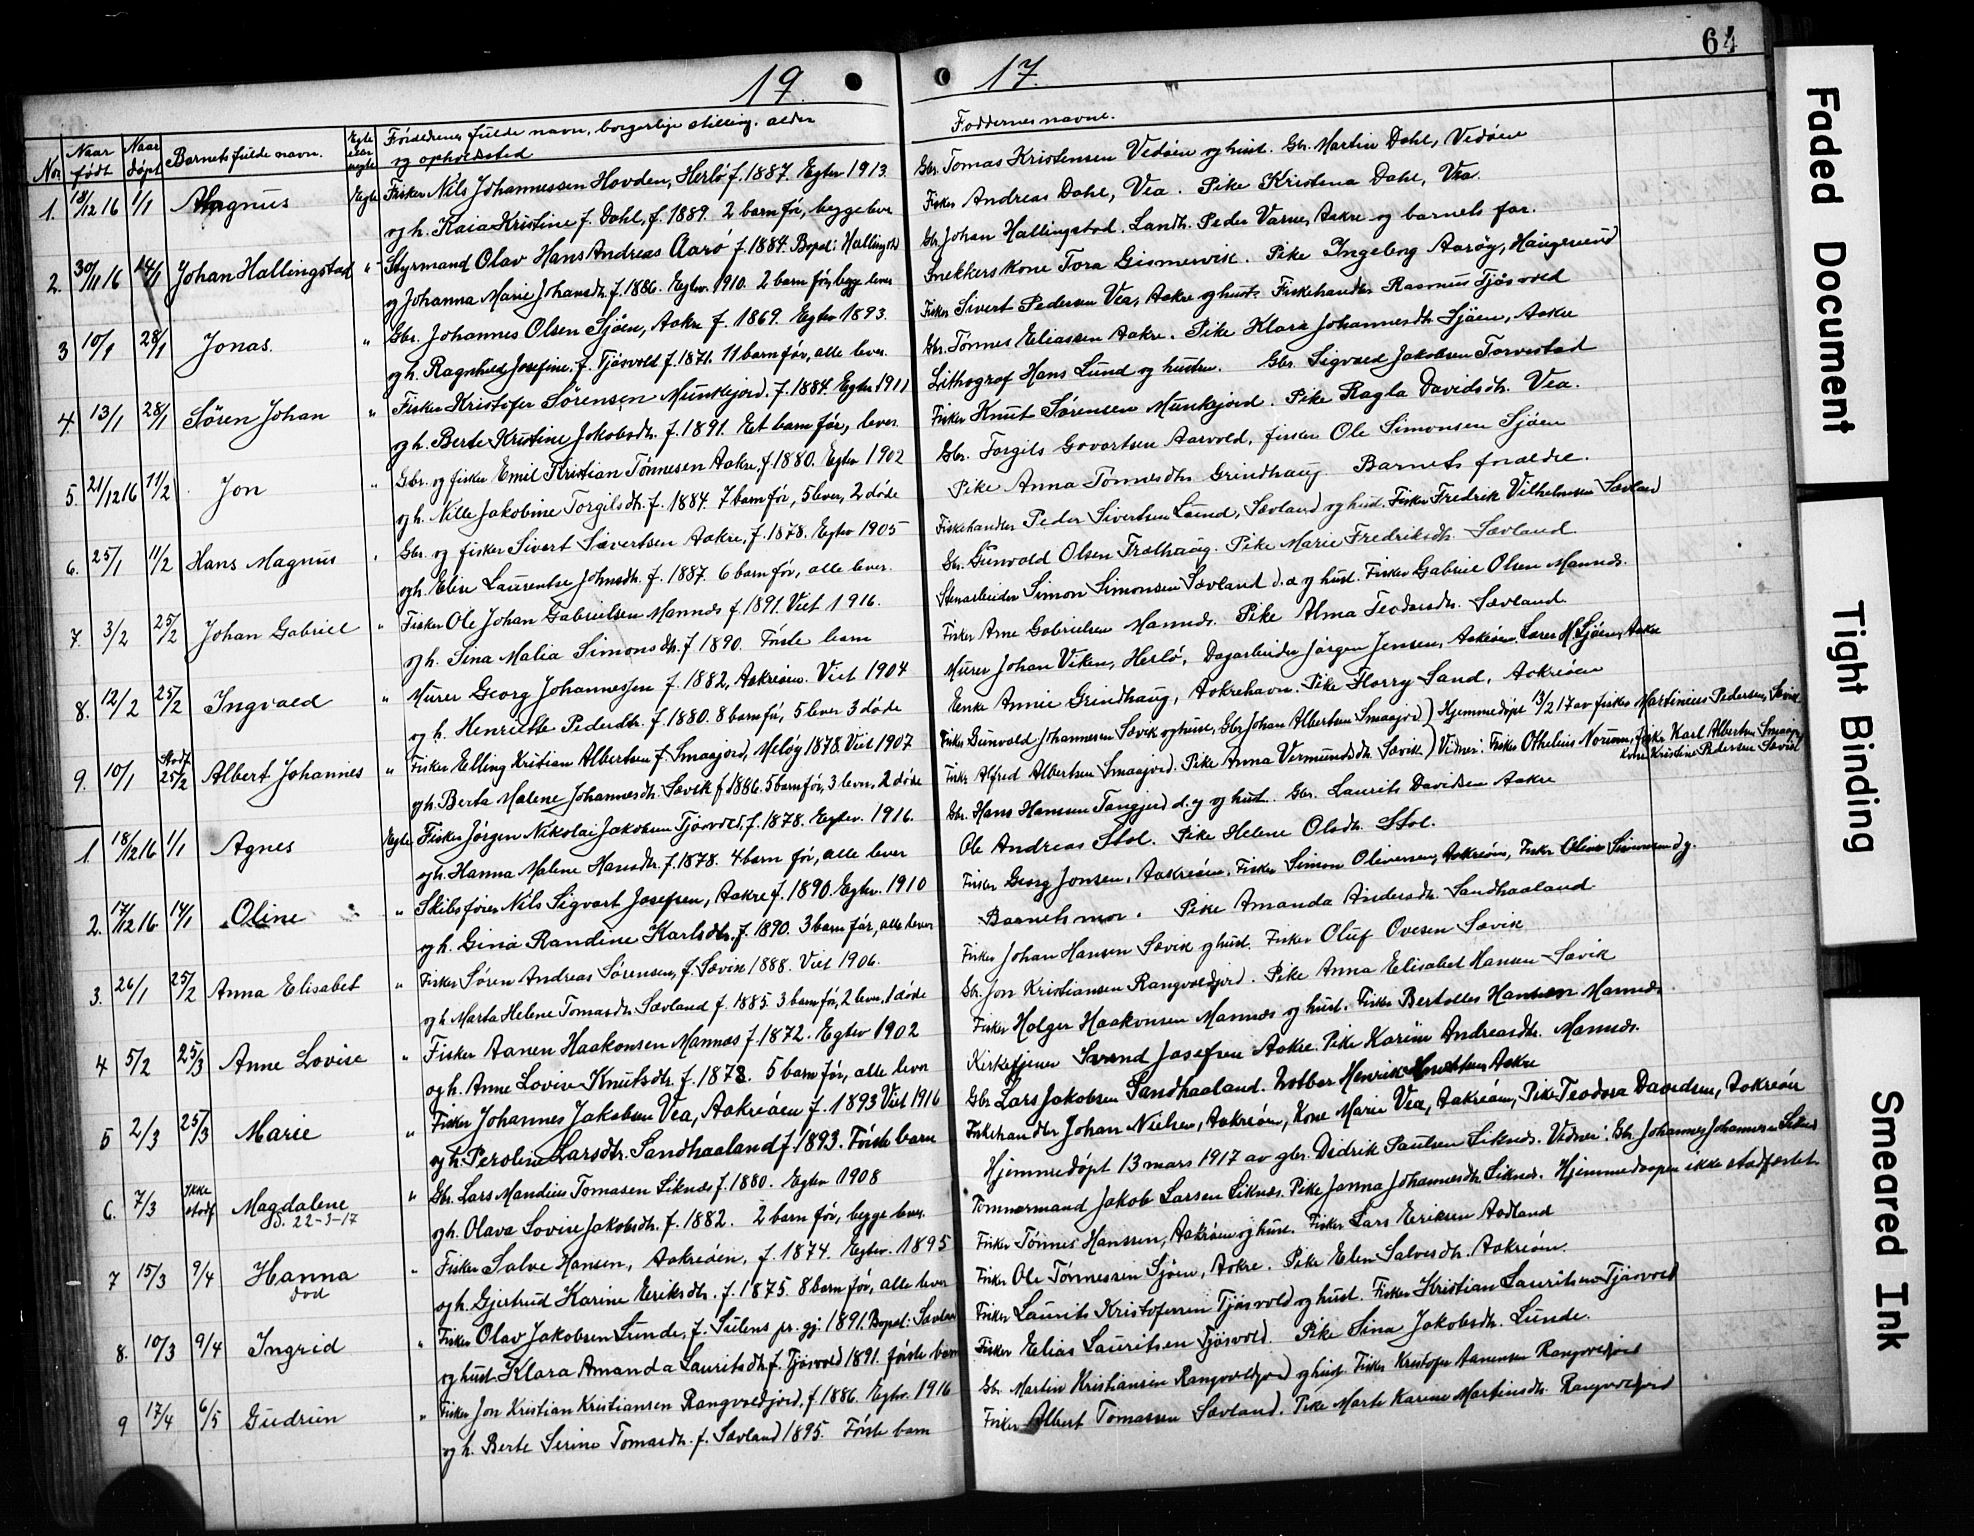 19
17.
64
Nor. Naar født Naar døpt Barnets fulde navn. Egte eller uegte Forældrenes fulde navn, borgerlige stilling, alder og opholdssted
Faddernes navne.
1. 18/12 16 1/1 Magnus Egte Fisker Nils Johannessen Hovden, Herlø f. 1887. Egtev 1913.
og h. Kaia Kristine f. Dahl, f. 1889. 2 barn før, begge lever
Gbr. Tomas Kristensen Vedøen og hust. Gbr. Martin Dahl, Vedøen
Fisker Andreas Dahl, Vea. Pike Kristena Dahl, Vea
2. 30/11 16 14/1 Johan Hallingstad " Styrmand Olav Hans Andreas Aarø f. 1884. Bopæl: Hallingstd
og Johanna Marie Johansdtr. f. 1886. Egtev. 1910. 2 barn før, begge lever
Gbr. Johan Hallingstad. Landh. Peder Varne, Aakre og barnets far.
Snekkerskone Tora Gismervik. Pike Ingeborg Aarøy, Haugesund
3 10/1 28/1 Jonas. " Gbr. Johannes Olsen Sjøen, Aakre f. 1869. Egtev 1893.
og h. Ragnhild Josefine f. Tjøsvold f. 1871. 11 barn før, alle lever.
Fisker Sivert Pedersen Vea, Aakre og hust. Fiskehandler Rasmus Tjøsvold
Gbr. Tønnes Eliassen Aakre. Pike Klara Johannesdtr Sjøen, Aakre
4. 13/1 28/1 Søren Johan " Fisker Kristofer Sørensen Munkejord. f. 1884 Egtev 1911
og h. Berte Kristine Jakobsdtr. f. 1891. Et barn før, lever.
Lithograf Hans Lund og hustru. Gbr. Sigvald Jakobsen Torvestad
Fisker Knut Sørensen Munkejord. Pike Ragla Davidsdtr. Vea.
5. 21/12 16 11/2 Jon " Gbr. og fisker Emil Kristian Tønnesen Aakre, f. 1880. Egtev 1902
og h. Nille Jakobine Torgilsdtr. f. 1884. 7 barn før, 5 lever, 2 døde
Gbr. Torgils Govertsen Aarvold, fisker Ole Simonsen Sjøen
Pike Anna Tonnesdtr Grindhaug Barnets forældre.
6. 25/1 11/2 Hans Magnus " Gbr. og fisker Sivert Sivertsen Aakre, f. 1878. Egtev 1905
og h. Elise Laurentse Johnsdtr. f. 1887. 6 barn før, alle lever.
Fiskehandler Peder Sivertsen Lund, Sævland og hust. Fisker Fredrik Vilhelmsen Sævland
Gbr. Gunvald Olsen Trælhaug. Pike Marie Fredriksdtr. Sævland
7. 3/2 25/2 Johan Gabriel " Fisker Ole Johan Gabrielsen Mannes f. 1891. Viet 1916.
og h. Sina Malia Simonsdtr. f. 1890. Første barn
Stenarbeider Simon Simonsen Sævland d.æ og hust. Fisker Gabriel Olsen Mannes.
Fisker Arne Gabrielsen Mannes. Pike Alma Teodorsdtr. Sævland
8. 12/2 25/2 Ingvald " Murer Georg Johannessen f. 1882, Aakreøen. Viet 1904
og h. Henriette Pedersdtr. f. 1880. 8 barn før, 5 lever 3 døde
Murer Johan Viken, Herlø, Dagarbeider Jørgen Jensen, Aakreøen. Lærer M. Sjøen, Aakre
Enke Annie Grindhaug, Aakrehavn. Pike Florry Sand, Aakreøen
9. 10/1 Stadf. 25/2 Albert Johannes " Fisker Elling Kristian Albertsen f. Smaajord, Meløy 1878. Viet 1907
og h. Berta Malene Johannesdtr. Sævik f 1886. 5 barn før, 3 lever, 2 døde
Fisker Gunvald Johannesen Sævik og hust, Gbr Johan Albertsen Smaajord) Hjemmedøpt 13/2 17 av fisker Martinius Pedersen, Sævik
Fisker Alfred Albertsen Smaajord. Pike Anna Vermundsdtr Sævik) Vidner: Fisker Othelius Norum, fiske Karl Albertsen Smaajord
kone Kristine Pedersen Sævik
1 18/12 16 1/1 Agnes Egte Fisker Jørgen Nikolai Jakobsen Tjøsvold, f. 1878. Egtev. 1916.
og h. Hanna Malene Hansdtr. f. 1878. 4 barn før, alle lever
Gbr. Hans Hansen Tangjerd d.y og hust. Gbr. Laurits Davidsen Aakre
Ole Andreas Stol. Pike Helene Olsdtr. Stol.
2. 17/12 16 14/1 Oline " Skibsfører Nils Sigvart Josefsen, Aakre f. 1890. Egtev. 1910
og h. Gina Randine Karlsdtr. f. 1890. 3 barn før, alle lever
Fisker Georg Jonsen, Aakreøen. Fisker Simon Oliversen, Aakreøen, Fisker Oliver Simonsen d.y.
Barnets mor. Pike Amanda Andersdtr. Sandhaaland
3. 26/1 25/2 Anna Elisabet " Fisker Søren Andreas Sørensen, f. Sævik 1888. Viet 1906.
og h Marta Helene Tomasdtr. Sævland f. 1885. 3 barn før, 2 lever, 1 døde
Fisker Johan Hansen Sævik og hust. Fisker Oluf Ovesen Sævik
Gbr. Jon Kristiansen Rangvoldjord. Pike Anna Elisabet Hansen Sævik
4 5/2 25/3 Anne Lovise " Fisker Aanen Haakonsen Mannes f. 1872. Egtev 1902
og h. Anne Lovise Knutsdtr. f. 1878. 5 barn før, alle lever
Fisker Holger Haakonsen Mannes og hust. Fisker Bertelles Hansen Mannes.
Kirketjener Svend Josefsen Aakre. Pike Karine Andreasdtr. Mannes.
5 2/3 25/3 Marie " Fisker Johannes Jakobsen Vea, Aakreøen f. 1893 Viet 1916
og h. Peroline Larsdtr. Sandhaaland f 1893. Første barn
Gbr. Lars Jakobsen Sandhaaland. Henrik Aakre
Fiskehandler Johan Nielsen, Aakreøen, Kone Marie Vea, Aakreøen, Pike Teodora Davidsen, Aakreøen
6. 7/3 Ikke stadf Magdalene " Gbr. Lars Mandius Tomasen Liknes f. 1880. Egtev 1908
d. 22-3-17
og h. Olava Lovise Jakobsdtr. f. 1882. 2 barn før, begge lever.
Hjemmedøpt 13 mars 1917 av gbr. Didrik Paulsen Liknes. Vidner: Gbr Johannes Johannesen Liknes
Tømmermand Jakob Larsen Liknes. Pike Janna Johannesdtr Liknes. Hjemmedaapen ikke stadfæstet
7 15/3 9/4 Hanna " Fisker Salve Hansen, Aakreøen, f. 1874. Egtev. 1895
død
og h. Gjertrud Karine Eriksdtr. f. 1875. 8 barn før, alle lever
Fisker Tønnes Hanssen, Aakreøen og hust. Fisker Lars Eriksen Aadland
Fisker Ole Tønnessen Sjøen, Aakre. Pike Elen Salvesdtr. Aakreøen.
8. 10/3 9/4 Ingrid " Fisker Olav Jakobsen Lunde, f. Sulens pr. gj. 1891. Bopæl: Sævland
og hust. Klara Amanda Lauritsdtr. f. Tjøsvold 1891. første barn
Fisker Laurits Kristofersen Tjøsvold og hust. Fisker Kristian Lauritsen Tjøsvold
Fisker Elias Lauritsen Tjøsvold. Pike Sina Jakobsdtr. Lunde.
9 17/4 6/5 Gudrun " Fisker Jon Kristian Kristiansen Rangvoldjord, f 1886. Egtev. 1916
og h. Berte Serine Tomasdtr. f. Sævland 1895. Første barn
Gbr. Martin Kristiansen Rangvoldjord og hust. Fisker Kristofer Aanensen Rangvoldjord
Fisker Albert Tomassen Sævland. Pike Marte Karine Martinsdtr. Rangvoldjord
Faded Document
Tight Binding
Smeared Ink